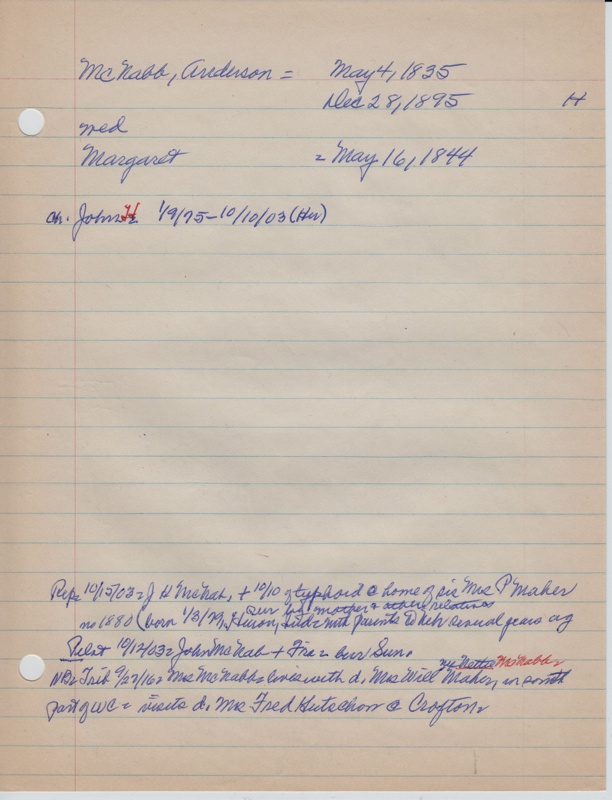 McNabb, Anderson = May 4, 1835
Dec 28, 1895 H
wed
Margaret = May 16, 1844
ch. John H 1/9/75 - 10/10/03 (Her)
Rep= 10/15/03= J H McNab, + 10/10 of typhoid @ home of sis Mrs P Maher
sur by mother & other relatives
no 1880 (born 1/3/79, Huron, with parents to Neb several years ag
Pilot 10/12/03= John McNab + Fri = bur Sun.
McNabb
Trib 9/27/16= Mrs McNabb= lives with d. Mrs Will Maher, in south
part of WC = visits d. Mrs Fred Hutschon @ Crofton=